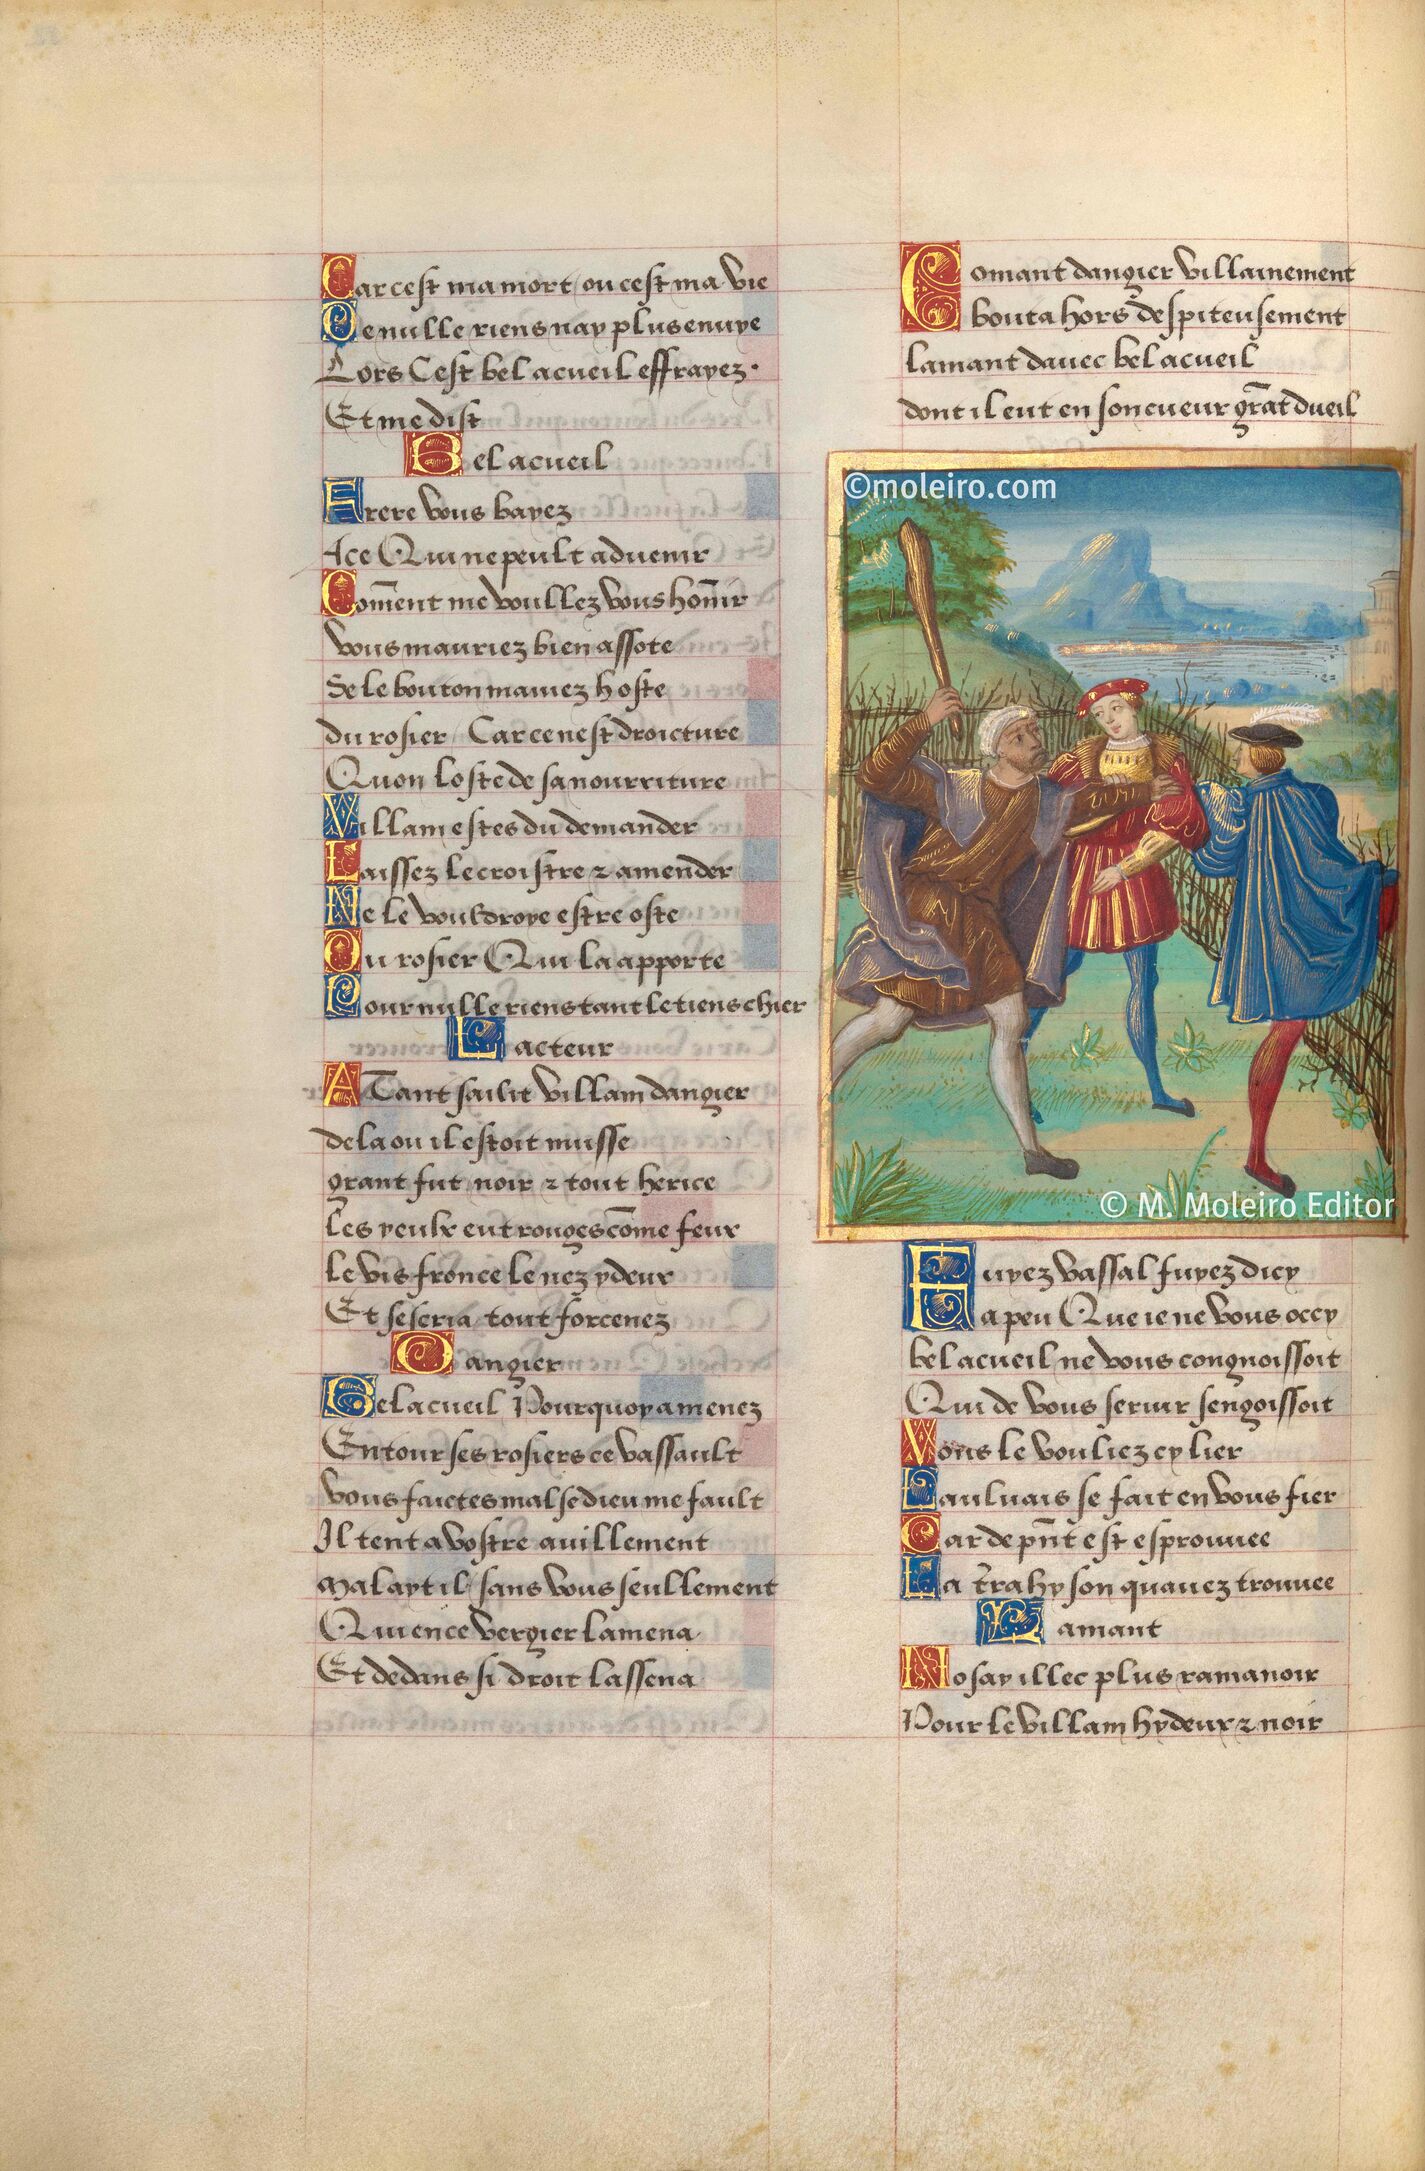 Car cest ma mort ou cest ma vie
De nulle riens nay plus enuye
Lors Cest bel acueil effrayez.
Et me dist
Bel acueil
Frere vous bayez
Ace Qui ne peult aduenir
Com̄ent me voullez vous hon̄ir
vous mauriez bien assote
Se le bouton mauiez hoste
du rosier Car ce nest droicture
Quon loste de sa nourriture
Villain estes du demander
Laissez le croistre ⁊ amender
Ne le vouldroye estre oste
Du rosier Qui la apporte
Pour nulle riens tant le tiens chier
Lacteur
ATant saillt villain dangier
de la ou il estoit musse
grant fut noir ⁊ tout herice
les yeulx eut rouges cōme feux
le vis fronce le nez ydeux
Et seseria tout forcenez
Dangier
Bel acueil Pourquoy amenez
Entour ses rosiers ce vassault
vous faictes mal se dieu me fault
Il tent a vostre auillement
mal ayt il sans vous seullement
Qui en ce vergier lamena
Et dedans si droit lassena
Comant dangier villainement
bouta hors despiteusement
lamant dauec bel acueil
dont il eut en son cueur grāt dueil
©moleiro.com
© M. Moleiro Editor
Fuyez vassal fuyez dicy
Ea peu Que ie ne vous occy
bel acueil ne vous congnoissoit
Qui de vous seruir sengoissoit
Vous le vouliez cy lier
Mauluais se fait en vous fier
Car de pn̄t est esprouuee
La trahyson quauez trouuee
Lamant
Nosay illec plus ramanoir
Pour le villain hydeux ⁊ noir